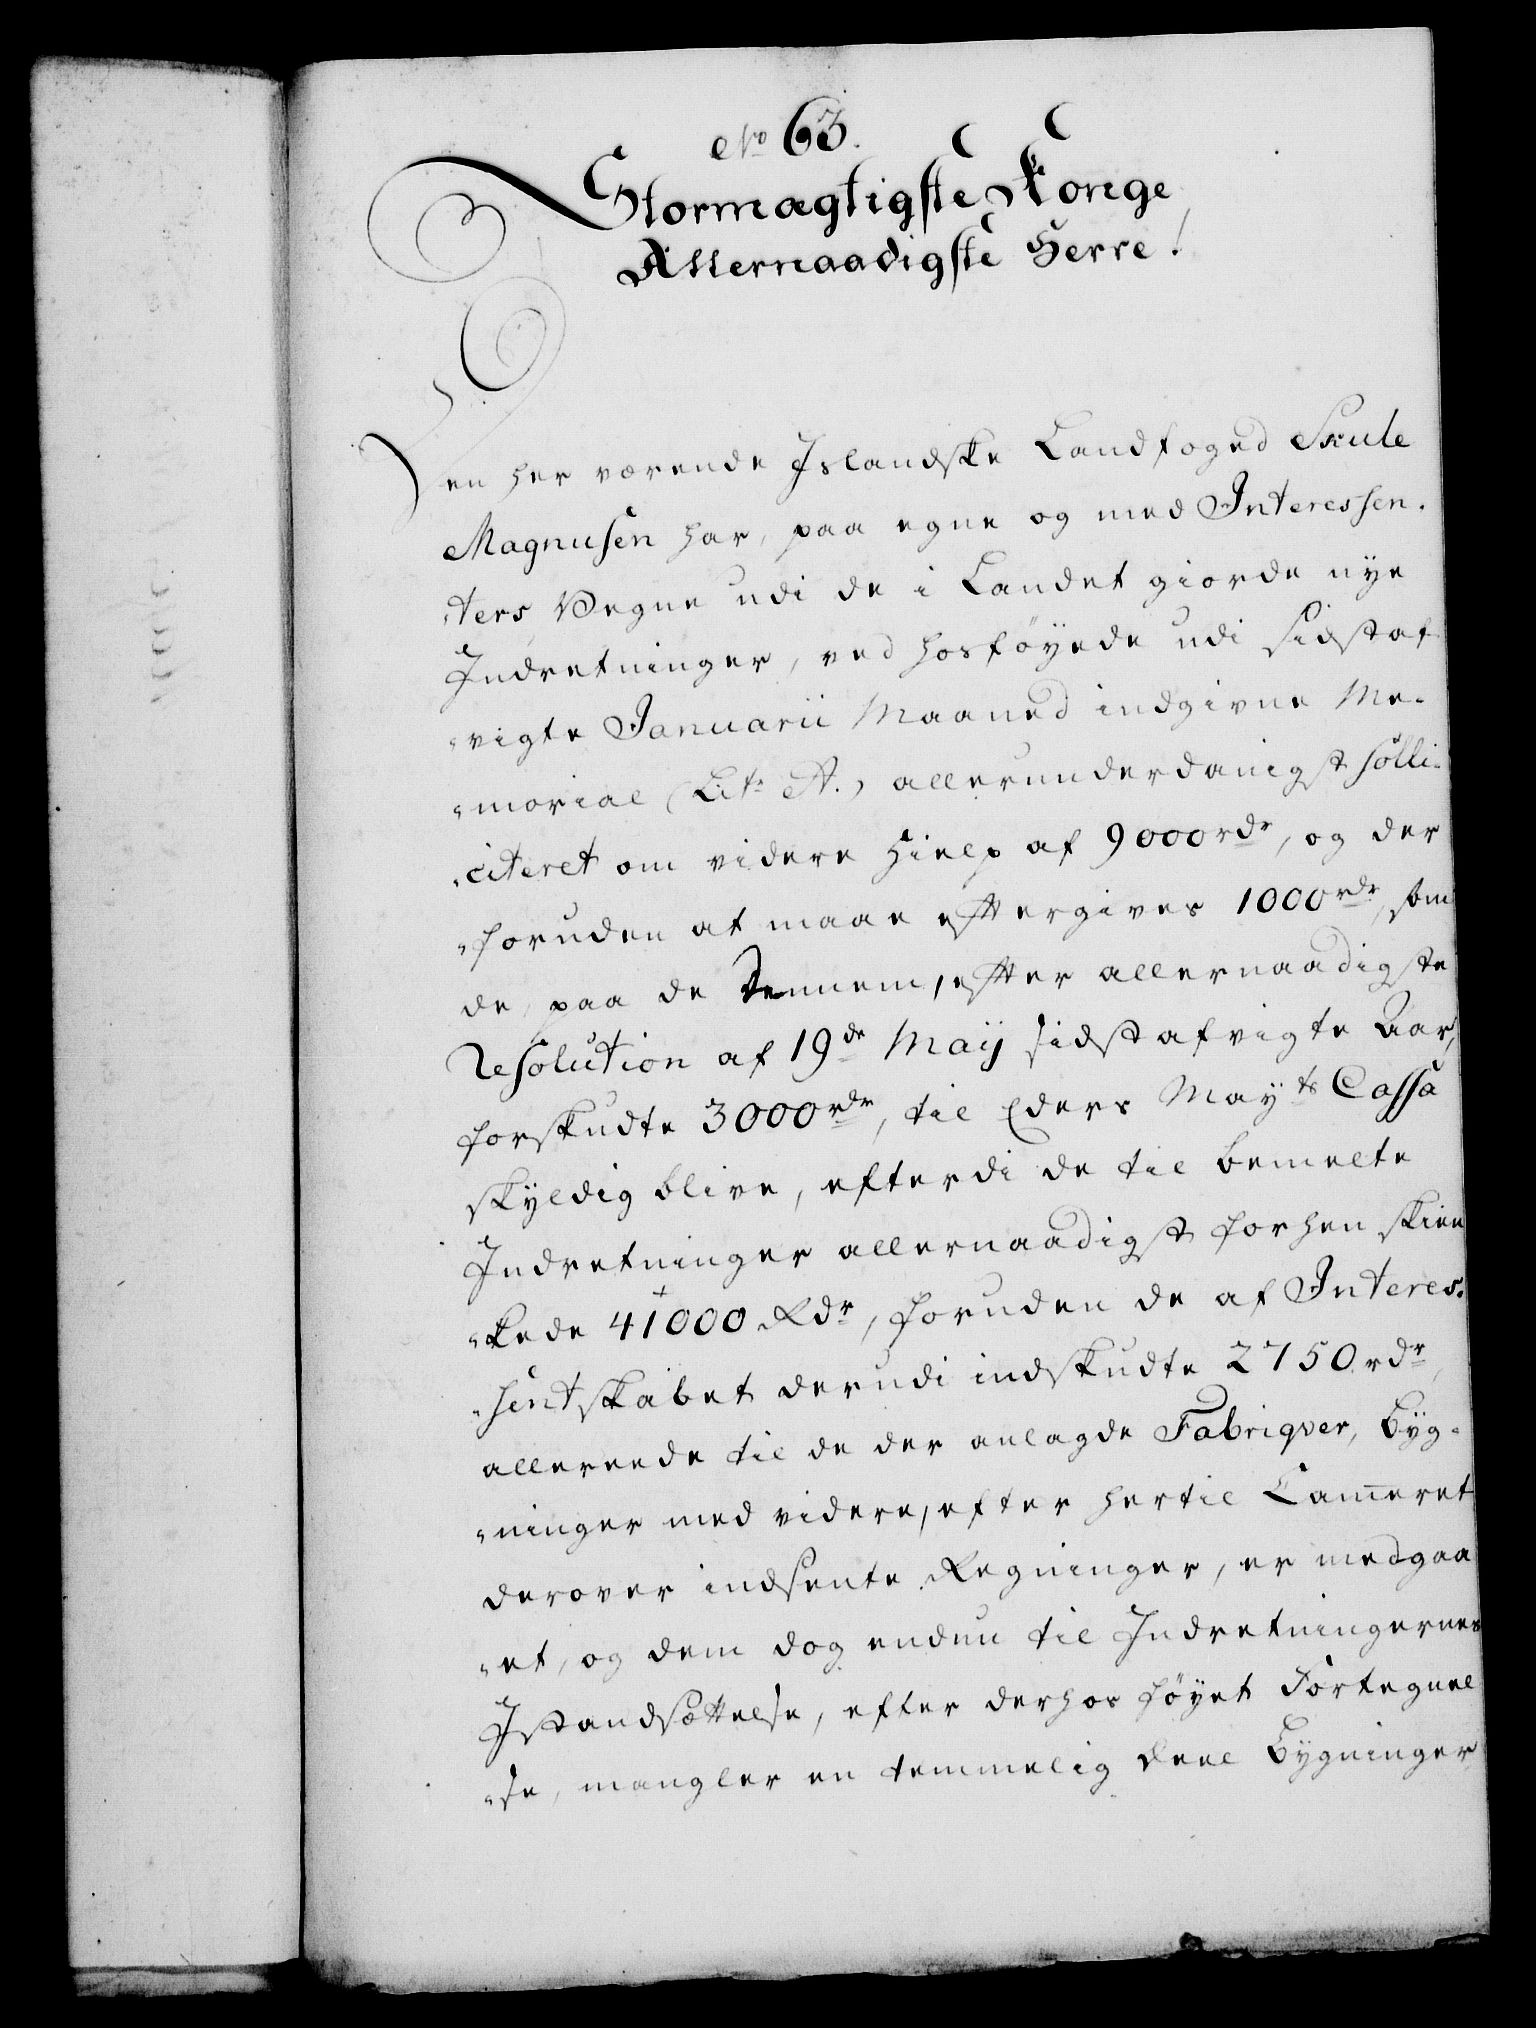 No 63.
Stormægtigste Konge,
Allernaadigste Herre!
Den her værende Islandske Landfoged Skule
Magnusen har, paa egne og med Interessen-
-ters Vegne udi de i Landet giorde nye
Indretninger, ved hosföyede udi sidst af-
-vigte Januarii Maaned indgivne Me-
-morial (Litr A.) allerunderdanigst solli-
-citeret om videre Hielp af 9000rdr, og der
-foruden at maae eftergives 1000rdr, som
de, paa de dennem, efter allernaadigste
Resolution af 19de Maij sidst afvigte Aar,
forskudte 3000rdr, til Eders Mayts Cassa
skyldig blive, efterdi de til bemelte
Indretninger allernaadigst forhen skien
-kede 41000 Rdr, foruden de af Interes-
-sentskabet derudi indskudte 2750rdr,
allereede til de der anlagde Fabriqver, Byg-
-ninger med videre, efter hertil Cam̄eret
derover indsente Regninger, er medgaa
-et, og dem dog endnu til Indretningernes
Istandsættelse, efter derhos föyet Fortegnel
-se, mangler en temmelig Deel Bygninger